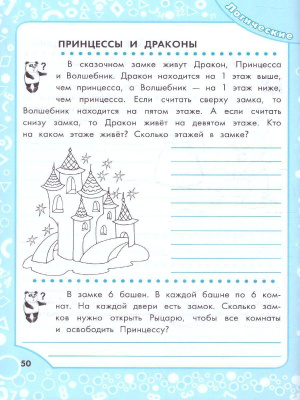 Логические
ПРИНЦЕССЫ И ДРАКОНЫ
В сказочном замке живут Дракон, Принцесса
и Волшебник. Дракон находится на 1 этаж выше,
чем принцесса, а Волшебник — на 1 этаж ниже,
чем принцесса. Если считать сверху замка, то
Волшебник находится на пятом этаже. А если считать
снизу замка, то Дракон живёт на девятом этаже. Кто
на каком этаже живёт? Сколько этажей в замке?
В замке 6 башен. В каждой башне по 6 ком-
нат. На каждой двери есть замок. Сколько зам-
ков нужно открыть Рыцарю, чтобы все комнаты
и освободить Принцессу?
50